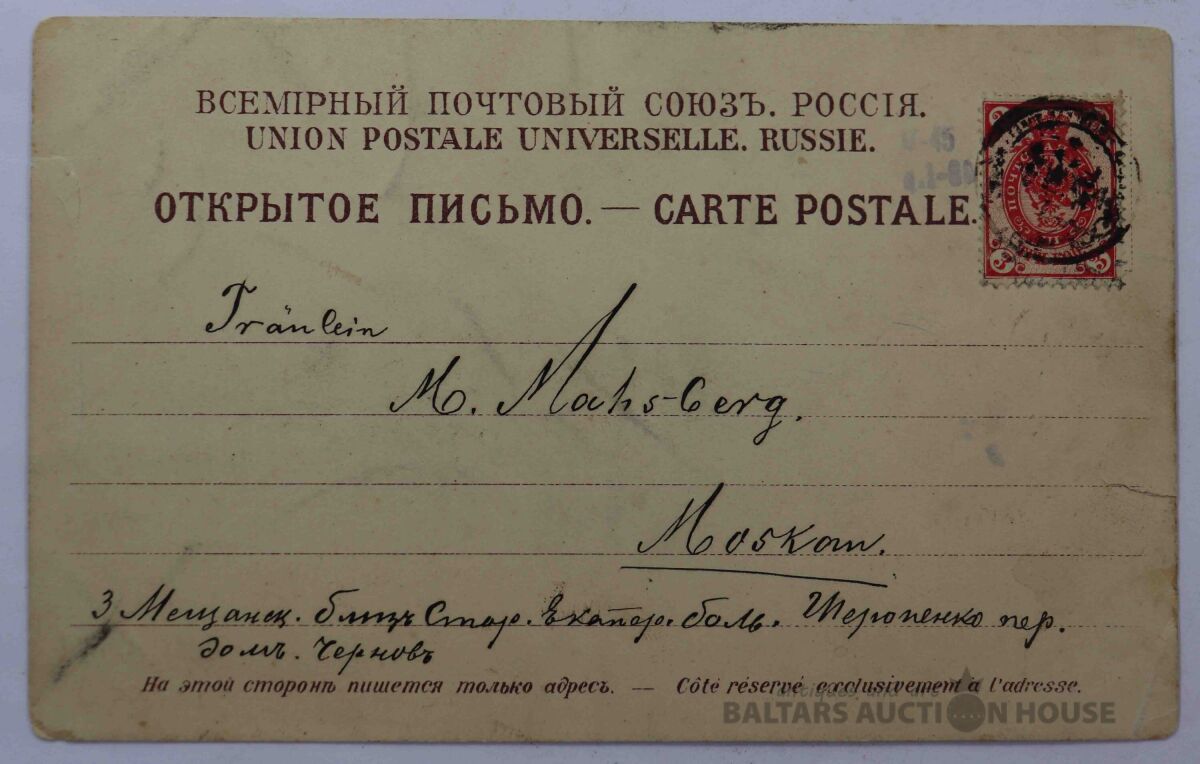 ВСЕМІРНЫЙ ПОЧТОВЫЙ СОЮЗЪ. РОССІЯ.
UNION POSTALE UNIVERSELLE. RUSSIE.
ОТКРЫТОЕ ПИСЬМО. — CARTE POSTALE.
3 3
Fräulein
M. Mahs-Berg.
Moskau.
3 Мещанск. близъ Стар. Екатер. боль. пер.
домъ. Черновъ
На этой сторонѣ пишется только адресъ. — Côté réservé exclusivement à l'adresse.
antiques and art
BALTARS AUCTION HOUSE